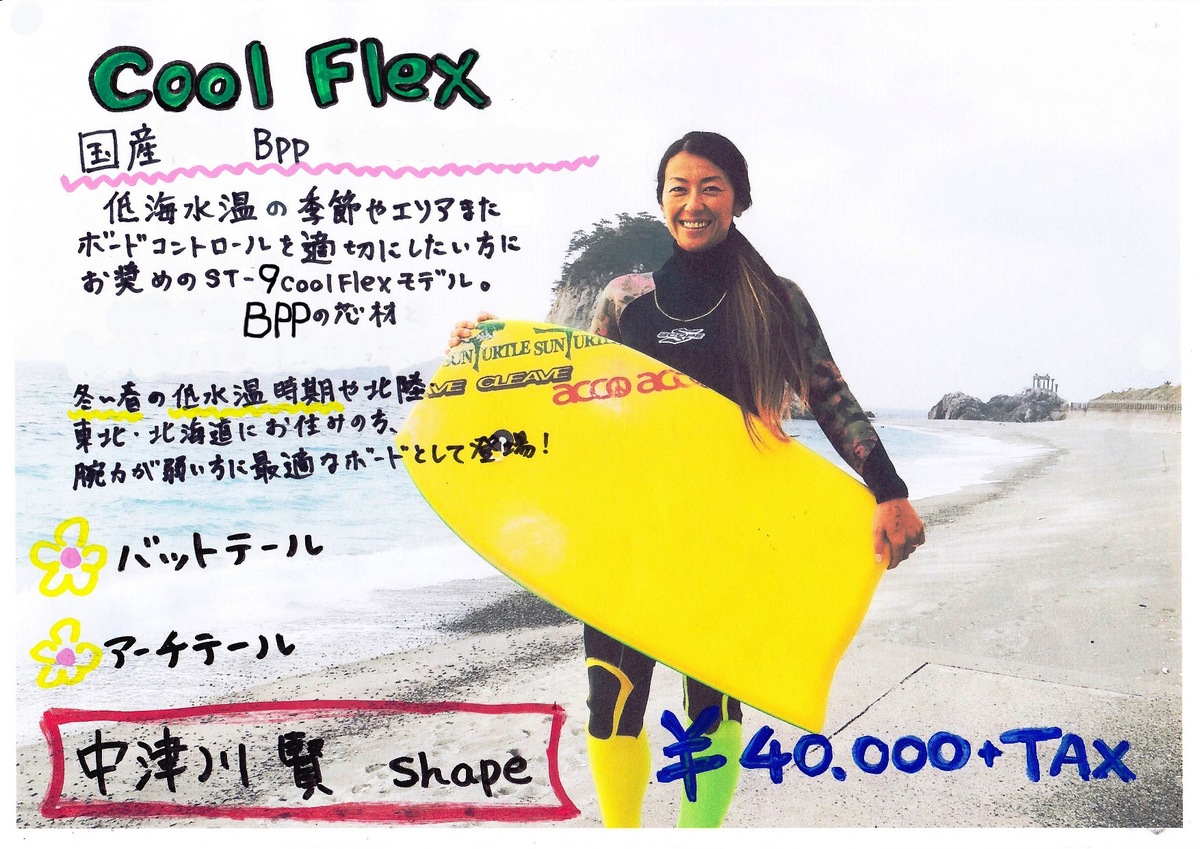 Cool Flex
国産 Bpp
低海水温の季節やエリアまた
ボードコントロールを適切にしたい方に
お奨めのST-9coolFlexモデル。
BPPの芯材
SUN TURTLE SUN TURTL
VE CLEAVE
acco acc
冬~春の低水温時期や北陸
東北・北海道にお住みの方、
腕力が弱い方に最適なボードとして登場!
バットテール
アーチテール
中津川 賢 shape
¥40.000+TAX